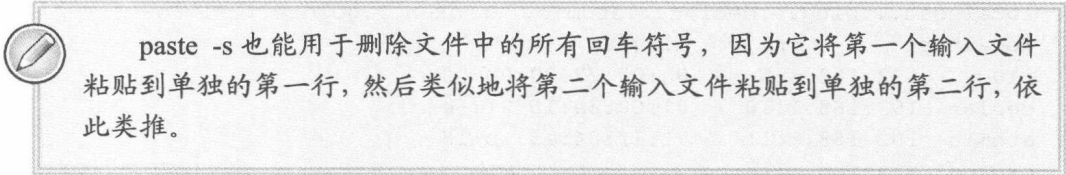 paste -s 也能用于删除文件中的所有回车符号，因为它将第一个输入文件
粘贴到单独的第一行，然后类似地将第二个输入文件粘贴到单独的第二行，依
此类推。